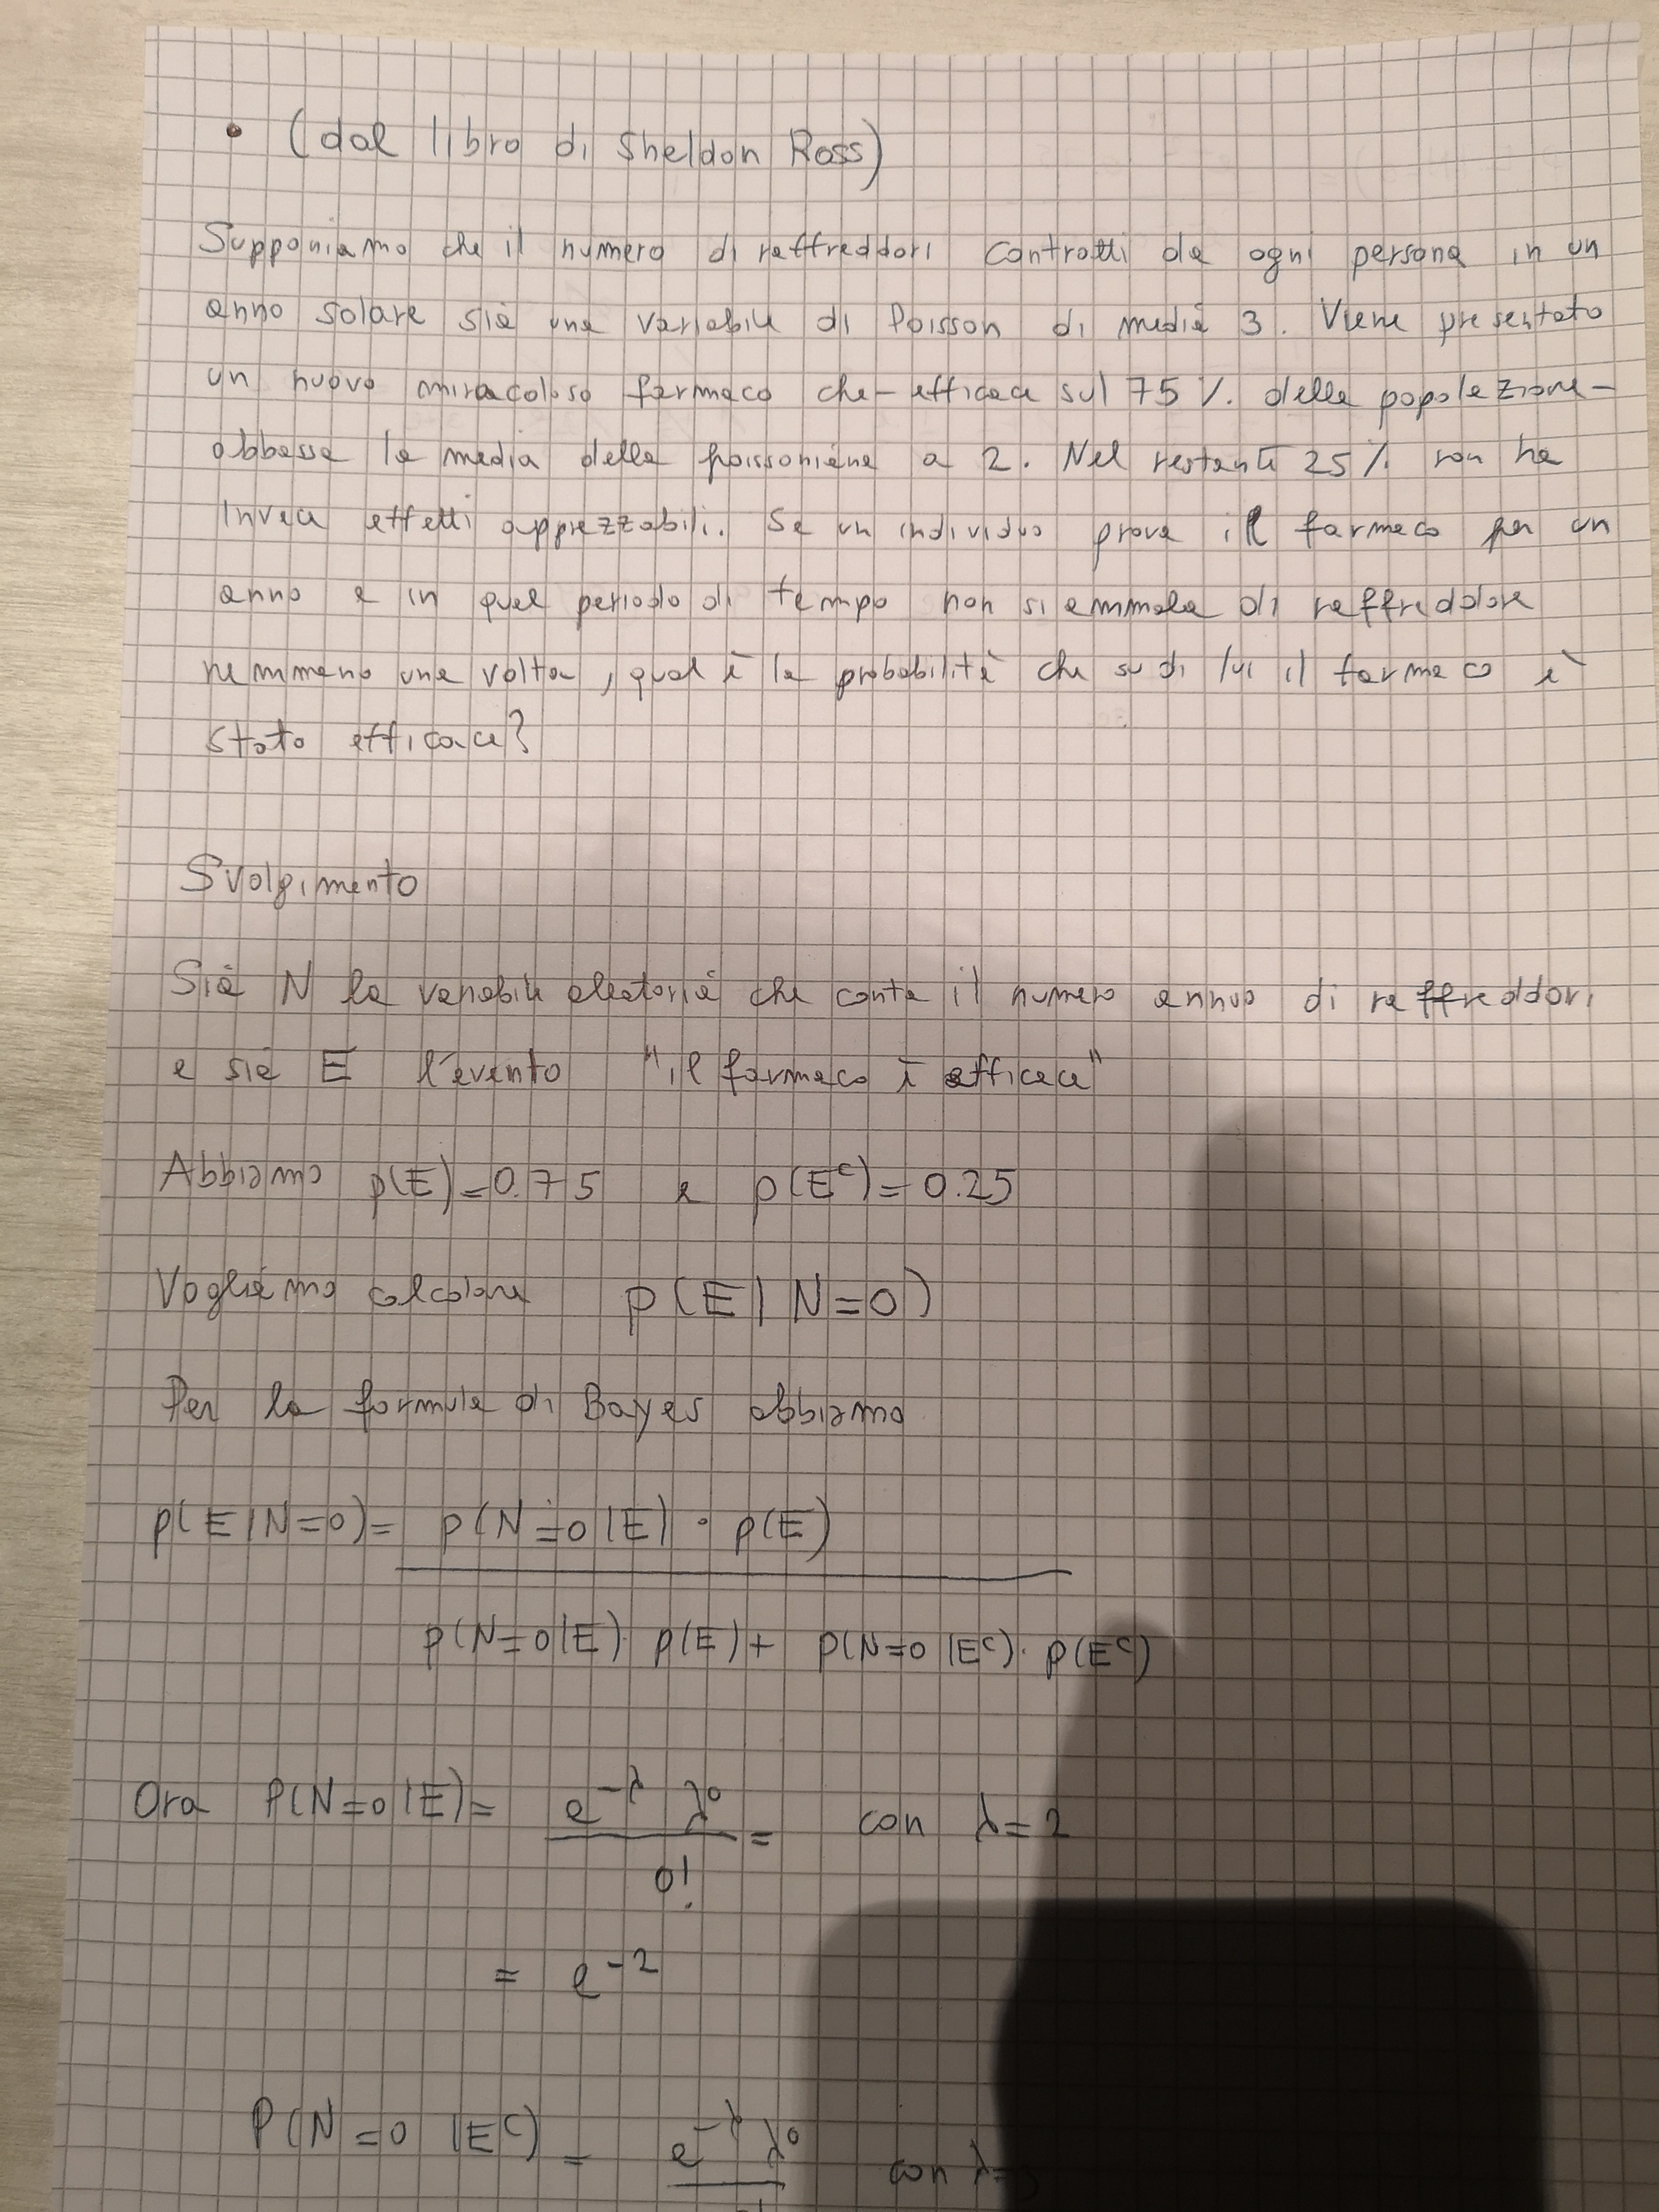 • (dal libro di Sheldon Ross)
Supponiamo che il numero di raffreddori contratti da ogni persona in un
anno solare sia una variabile di Poisson di media 3. Viene presentato
un nuovo miracoloso farmaco che - efficace sul 75 %. della popolazione -
abbassa la media della poissoniana a 2. Nel restante 25 %. non ha
invece effetti apprezzabili. Se un individuo prova il farmaco per un
anno e in quel periodo di tempo non si ammala di raffreddore
nemmeno una volta, qual è la probabilità che su di lui il farmaco è
stato efficace?
Svolgimento
Sia N la variabile aleatoria che conta il numero annuo di raffreddori
e sia E l'evento "il farmaco è efficace"
Abbiamo p(E)=0.75 e p(E^c)=0.25
Vogliamo calcolare p(E|N=0)
Per la formula di Bayes abbiamo
p(E|N=0)= p(N=0|E) · p(E)
p(N=0|E)· p(E)+ p(N=0|E^c)· p(E^c)
Ora P(N=0|E)= e^-λ λ^0 = con λ=2
0!
= e^-2
P(N=0 |E^c) = e^-λ λ^0 con λ=3